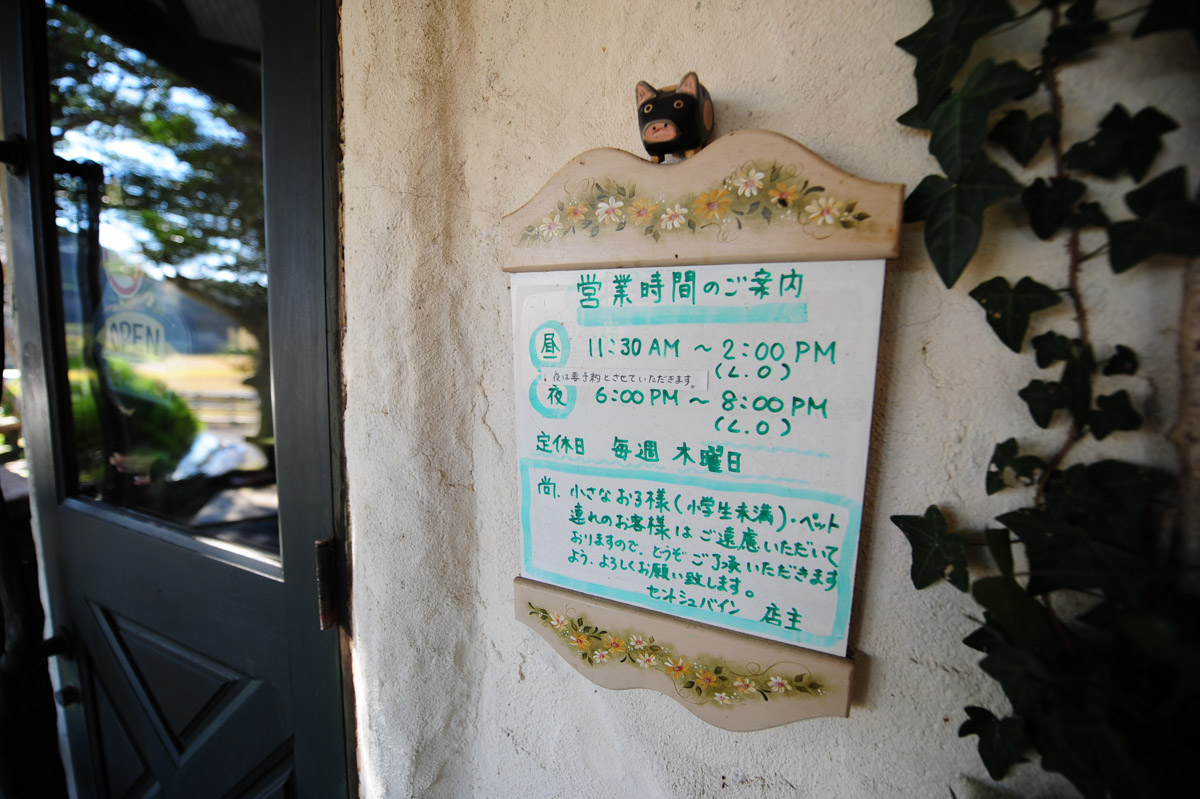 OPEN
営業時間のご案内
昼 11:30 AM ~ 2:00 PM
(L.O)
、夜は要予約とさせていただきます。
夜 6:00 PM ~ 8:00 PM
(L.O)
定休日 毎週 木曜日
尚、小さなお子様(小学生未満)・ペット
連れのお客様はご遠慮いただいて
おりますので、どうぞご了承いただきます
よう、よろしくお願い致します。
セントシュバイン 店主